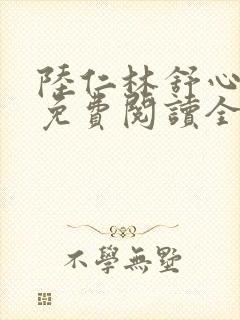 陸仁林舒心
免費閱讀全
不學無墅